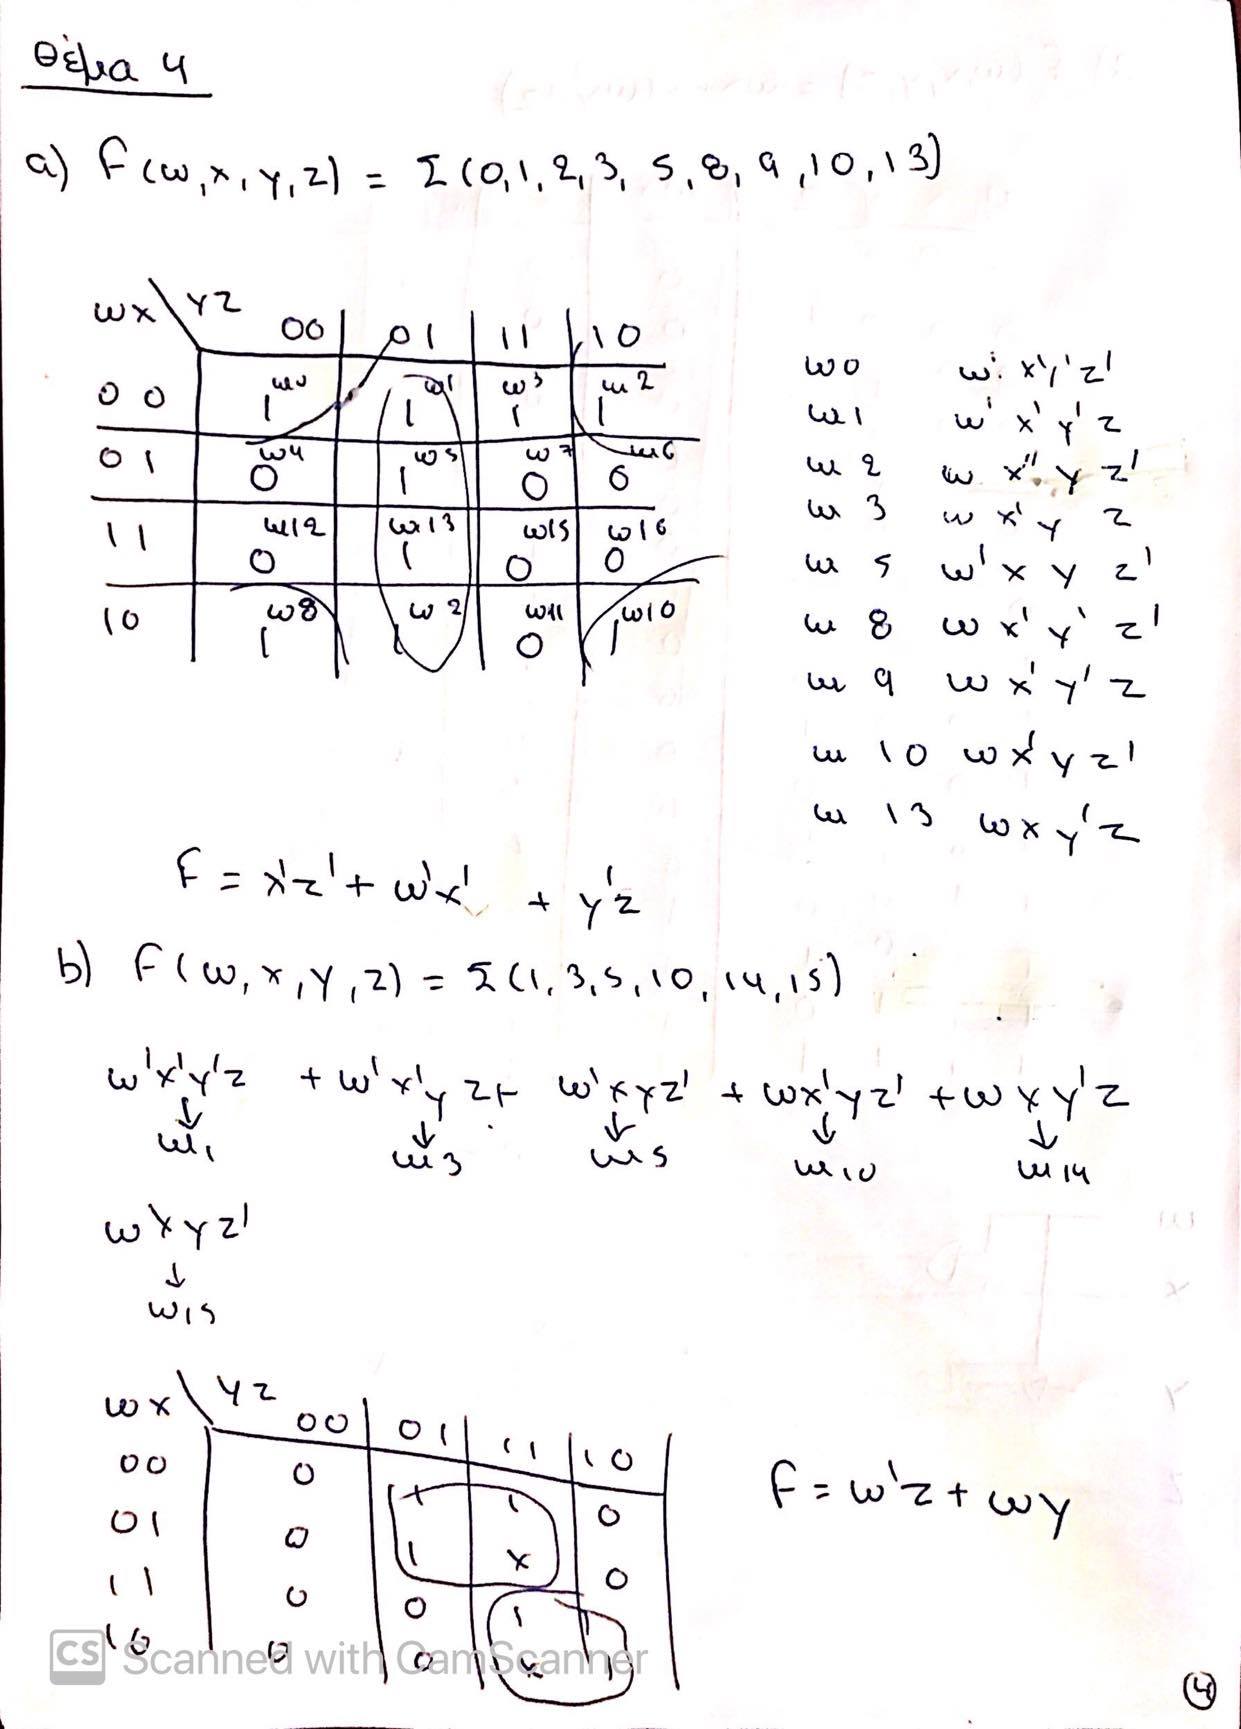 Θέμα 4
a) F(w,x,y,z) = Σ(0,1,2,3,5,8,9,10,13)
wx \ yz 00 01 11 10
00 m0 1 m1 1 m3 1 m2 1
01 m4 0 m5 1 m7 0 m6 0
11 m12 0 m13 1 m15 0 m16 0
10 m8 1 m2 1 m11 0 m10 1
m0 w'x'y'z'
m1 w'x'y'z
m2 w x'' y z'
m3 w x' y z
m5 w' x y z'
m8 w x' y' z'
m9 w x' y' z
m10 w x' y z'
m13 w x y' z
F = x'z' + w'x' + y'z
b) F(w,x,y,z) = Σ(1,3,5,10,14,15)
w'x'y'z + w'x'yz + w'xyz' + wx'yz' + wxy'z
↓ ↓ ↓ ↓ ↓
m1 m3 m5 m10 m14
wxyz'
↓
m15
wx \ yz 00 01 11 10
00 0 1 1 0
01 0 1 x 0
11 0 0 1 1
10 0 0 x 1
F = w'z + wy
CS Scanned with CamScanner
4